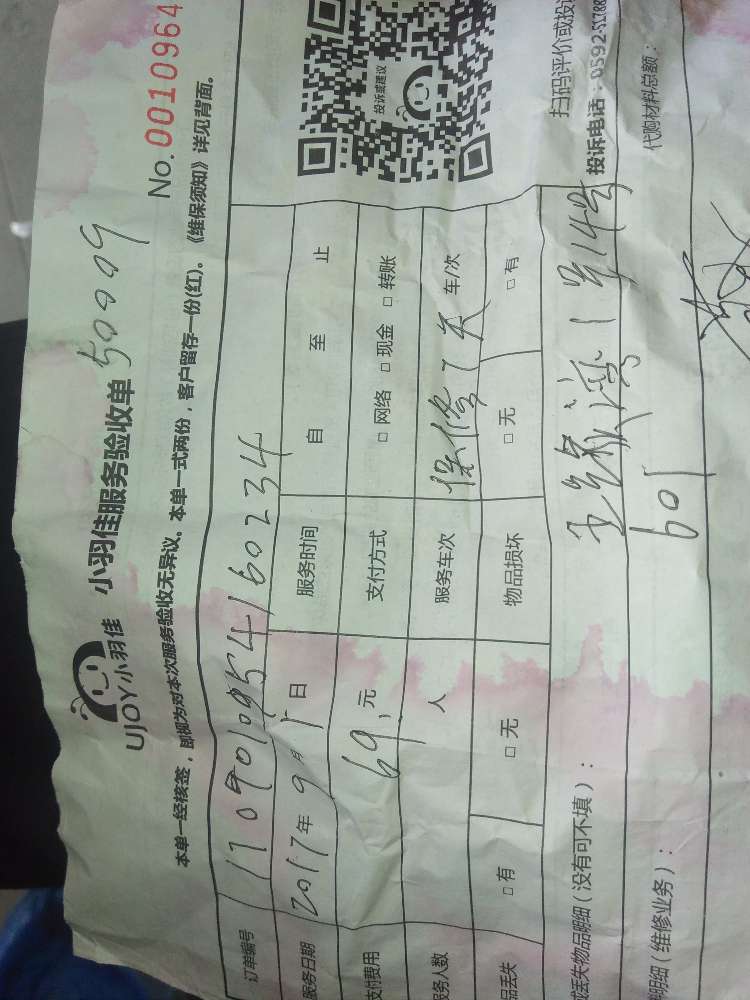 UJOY小羽佳 小羽佳服务验收单 50009
No.0010964
本单一经核签，即视为对本次服务验收无异议。本单一式两份，客户留存一份(红)。《维保须知》详见背面。
订单编号 170901095416 0234
服务日期 2017年9月1日 服务时间 自 至 止
支付费用 69,元 支付方式 □网络 □现金 □转账
务人数 人 服务车次 保修7天 车/次
品丢失 □有 □无 物品损坏 □无 □有
投诉或建议
扫码评价或投诉
投诉电话：0592-51788
或丢失物品明细（没有可不填）：
1号14号
601
明细（维修业务）：
代购材料总额：